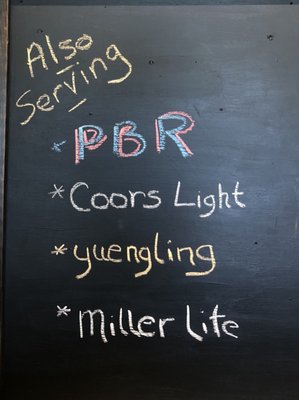 Also
Serving
* PBR
* Coors Light
* yuengling
* Miller Lite